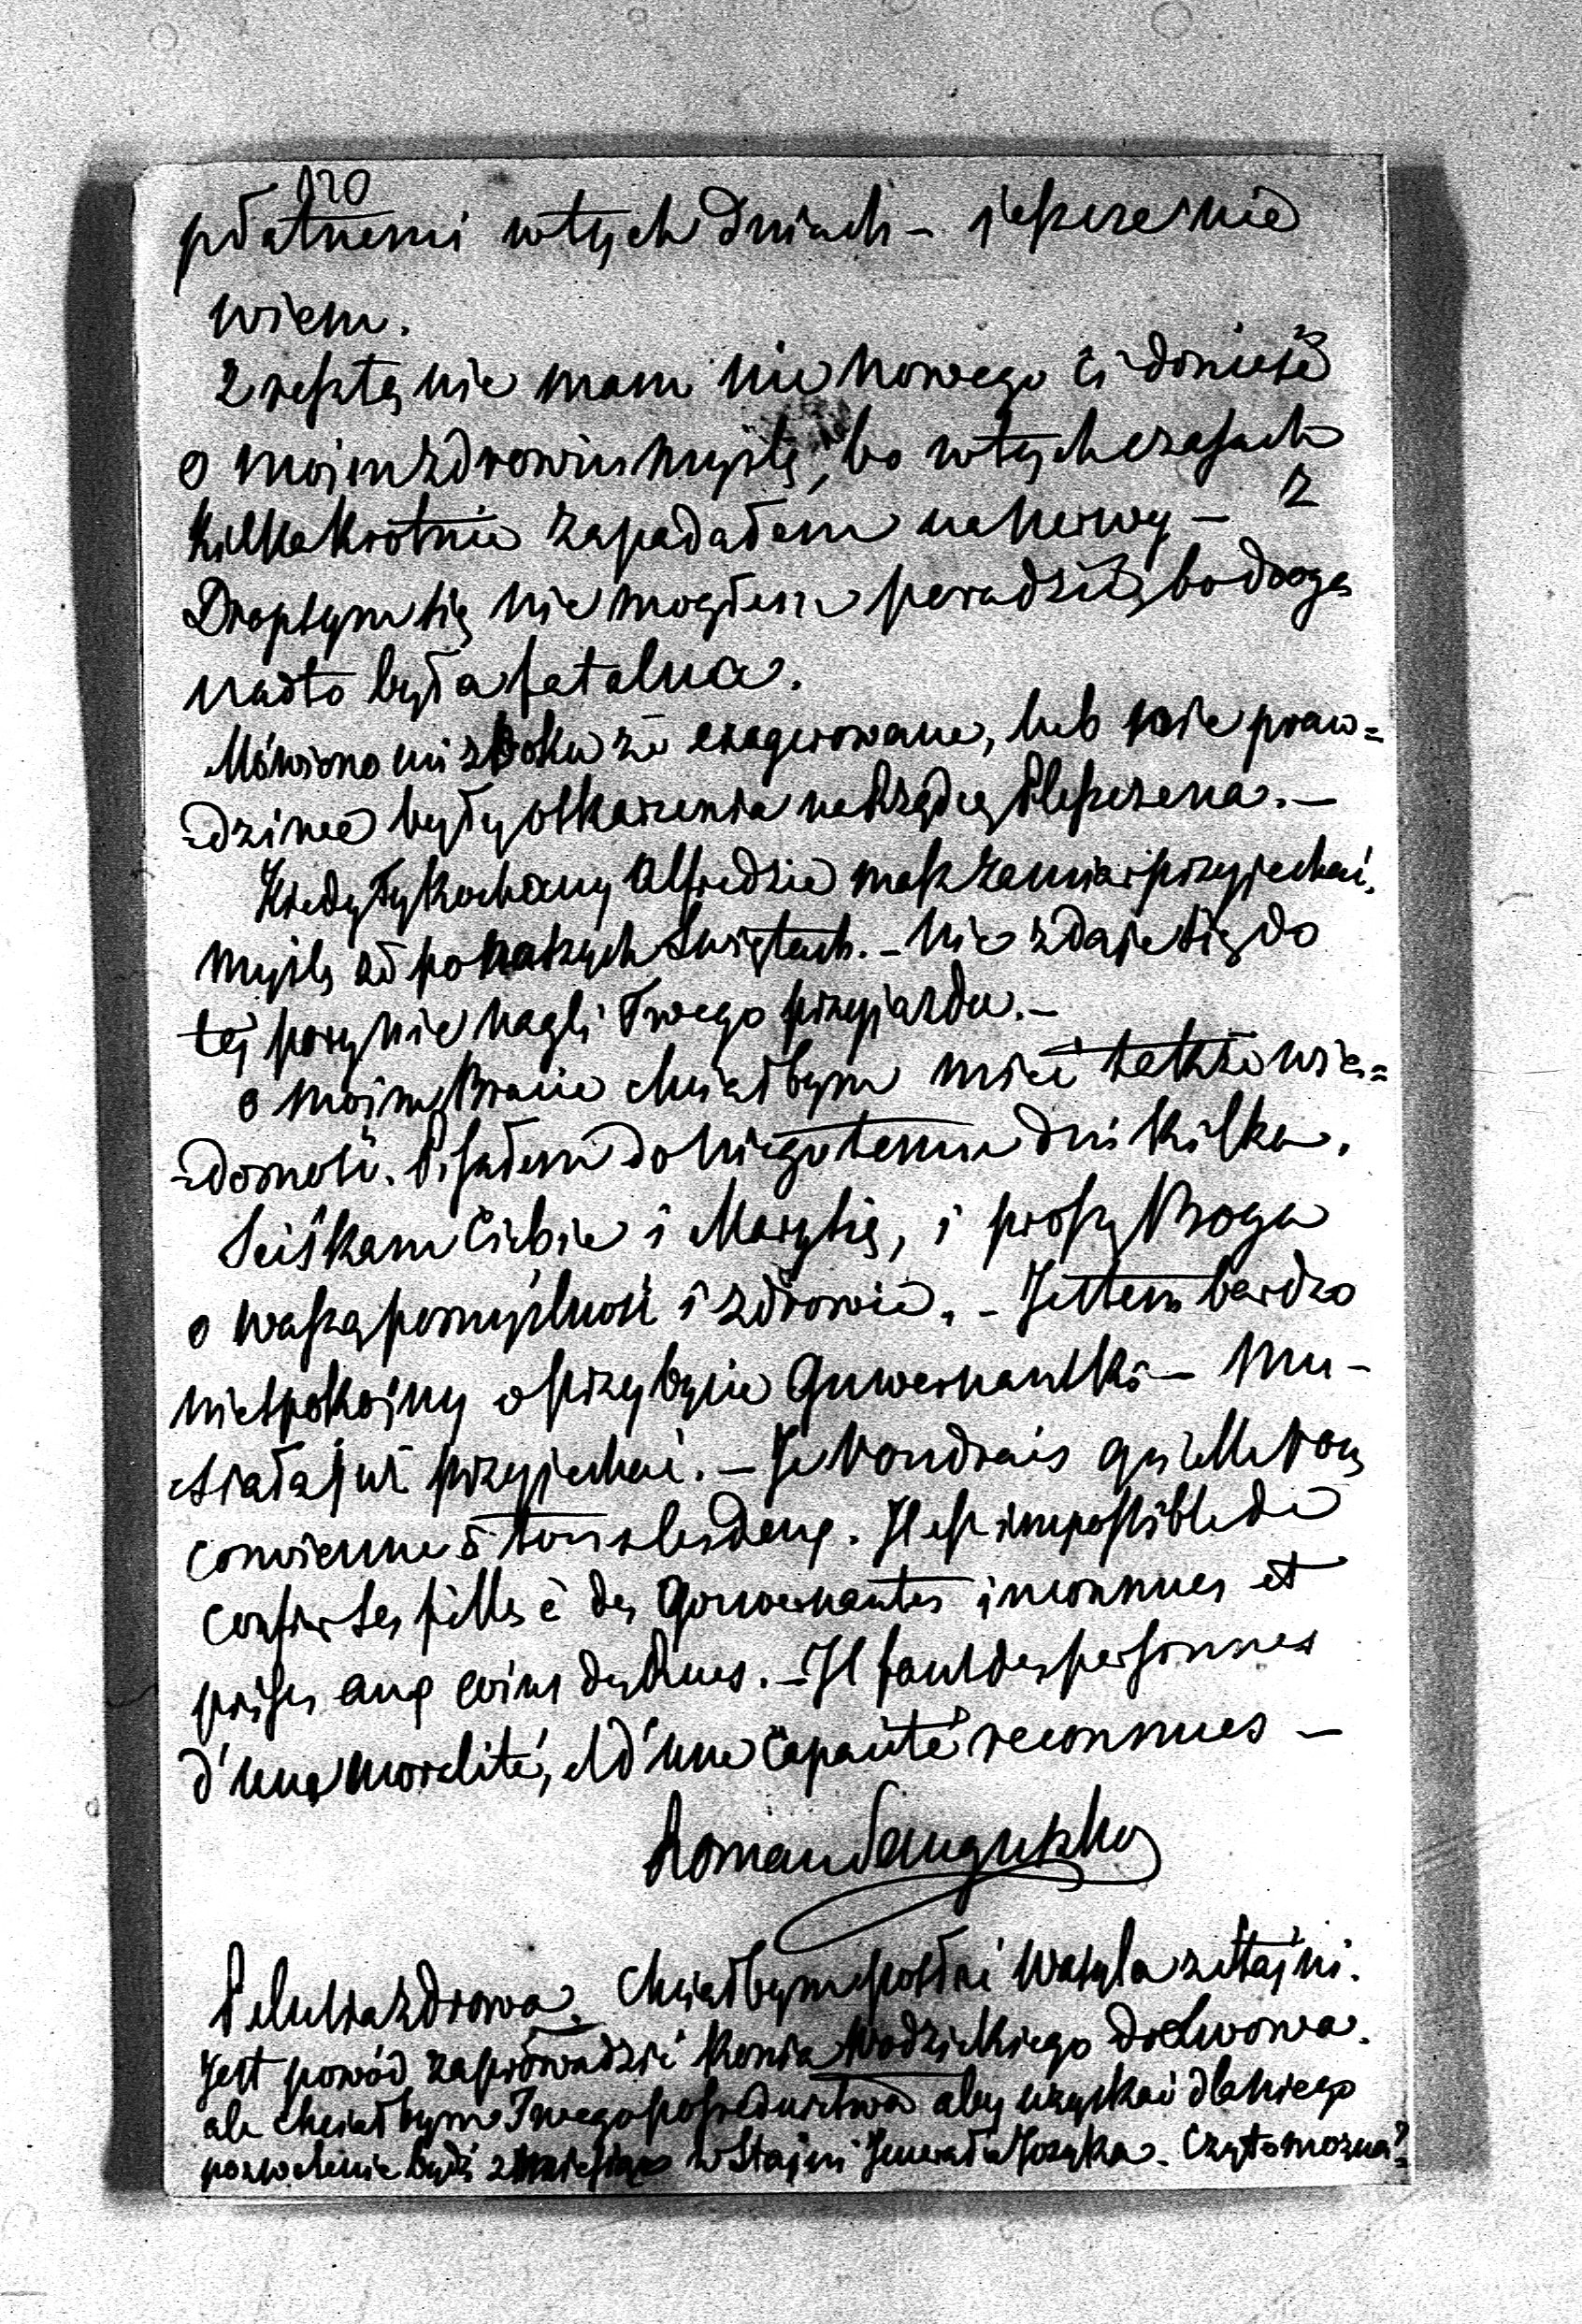 120
płatnemi w tych Dniach – jeszcze nie
wiem.
Zresztą nie mam nic nowego Ci donieść
o moim zdrowiu myślę, bo w tych czasach
Kilkakrotnie zapadałem na nerwy – z
się nie mogłem poradzić, bo droga
nadto była fatalna.
Mówiono mi z boku że exagerowane, lub nie praw=
=dziwe były oskarzenia na Rządcę Pleszczena. –
Kiedy Ty kochany Alfredzie masz zamiar przyjechać,
myślę że po naszych Świętach. – Nic zdaje się do
tej pory nie nagli Twego przyjazdu. –
O moim Bracie chciałbym mieć także wia=
=domość. Pisałem do niego temu dni kilka.
Ściskam Ciebie i Marysię, i proszę Boga
o waszą pomyślność i zdrowie. – Jestem bardzo
niespokojny o przybycie Guwernantki – Mu-
siała już przyjechać. – Je voudrais qu'elle vous
convienne à tous les deux. Il est impossible de
confier ses filles à des Gouvernantes inconnues et
prises aux coins des Rues. – Il faut des personnes
d'une moralité, et d'une capacité reconnues –
Roman Sanguszko
zdrowa. Chciałbym posłać Wasyla z stajni.
Jest powód zaprowadzić konia Wodzickiego do Lwowa.
ale chciałbym Twego pośrednictwa aby uzyskać dla niego
pozwolenie bydź z miesiąc w Stajni Jenerała . Czy to można?